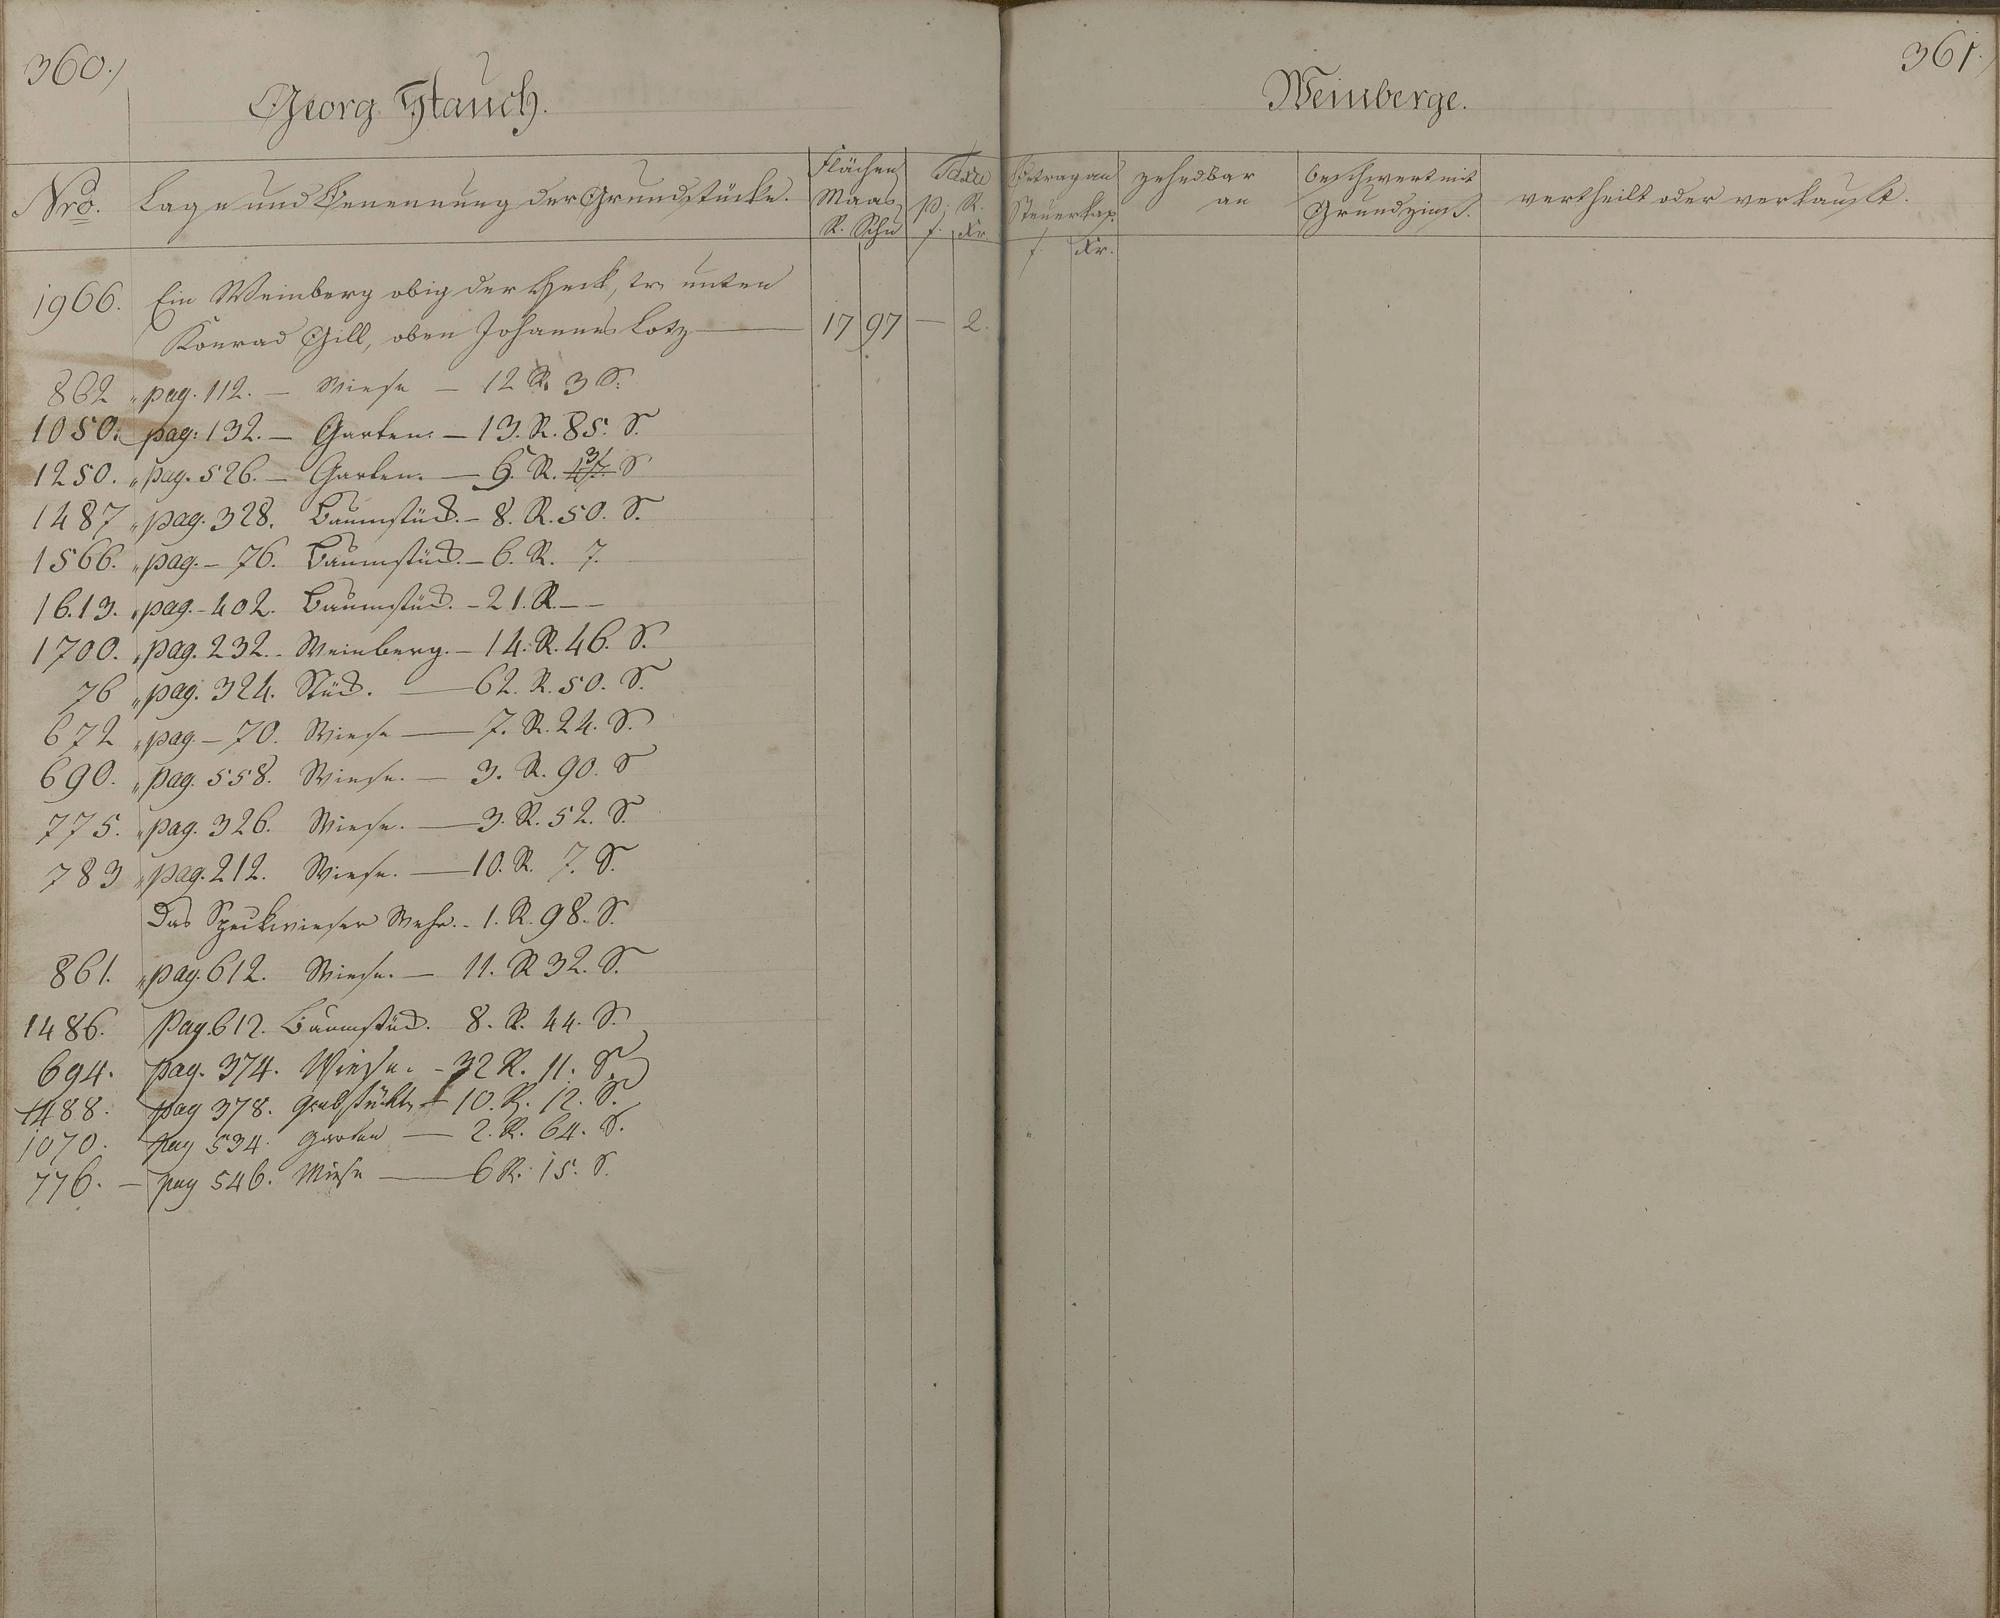 360.)
Georg Stauch.
Nro. Lage und Benennung der Grundstücke. Flächen Maas R. Schu Taxe p. R. f. Xr.
1966. Ein Weinberg obig der Heck, unten
Konrad Gill, oben Johannes Lotz — 17 97 — 2.
862 " pag. 112. — Wiese — 12 R. 3 S.
1050. pag. 132. — Garten. — 13. R. 85. S.
1250. " pag. 526. — Garten. — R. S
1487 " pag. 328. Baumstück. — 8. R. 50. S.
1566. " pag. — 76. Baumstück. — 6. R. 7.
16.13. " pag. — 402. Baumstück. — 21. R. — —
1700. " pag. 232. Weinberg. — 14. R. 46. S.
76 " pag. 324. Stück. — 62. R. 50. S.
672 " pag. — 70. Wiese — 7. R. 24. S.
690. " pag. 558. Wiese. — 3. R. 90. S
775. " pag. 326. Wiese. — 3. R. 52. S.
783 " pag. 212. Wiese. — 10. R. 7. S.
Das Speckwieser Wehr. — 1. R. 98. S.
861. " pag. 612. Wiese. — 11. R 32. S.
1486. Pag. 612. Baumstück. 8. R. 44. S.
694. pag. 374. Wiese. — 32 R. 11. S.
1488. pag 378. Grabstückl — 10. R. 12. S.
1070. pag 534. Garten — 2. R. 64. S.
776. — pag 546. Wiese — 6 R. 15. S.
361.)
Weinberge.
Betrag an Steuerkap. f. Xr. zehndbar an beschwert mit Grundzinß. vertheilt oder verkauft.